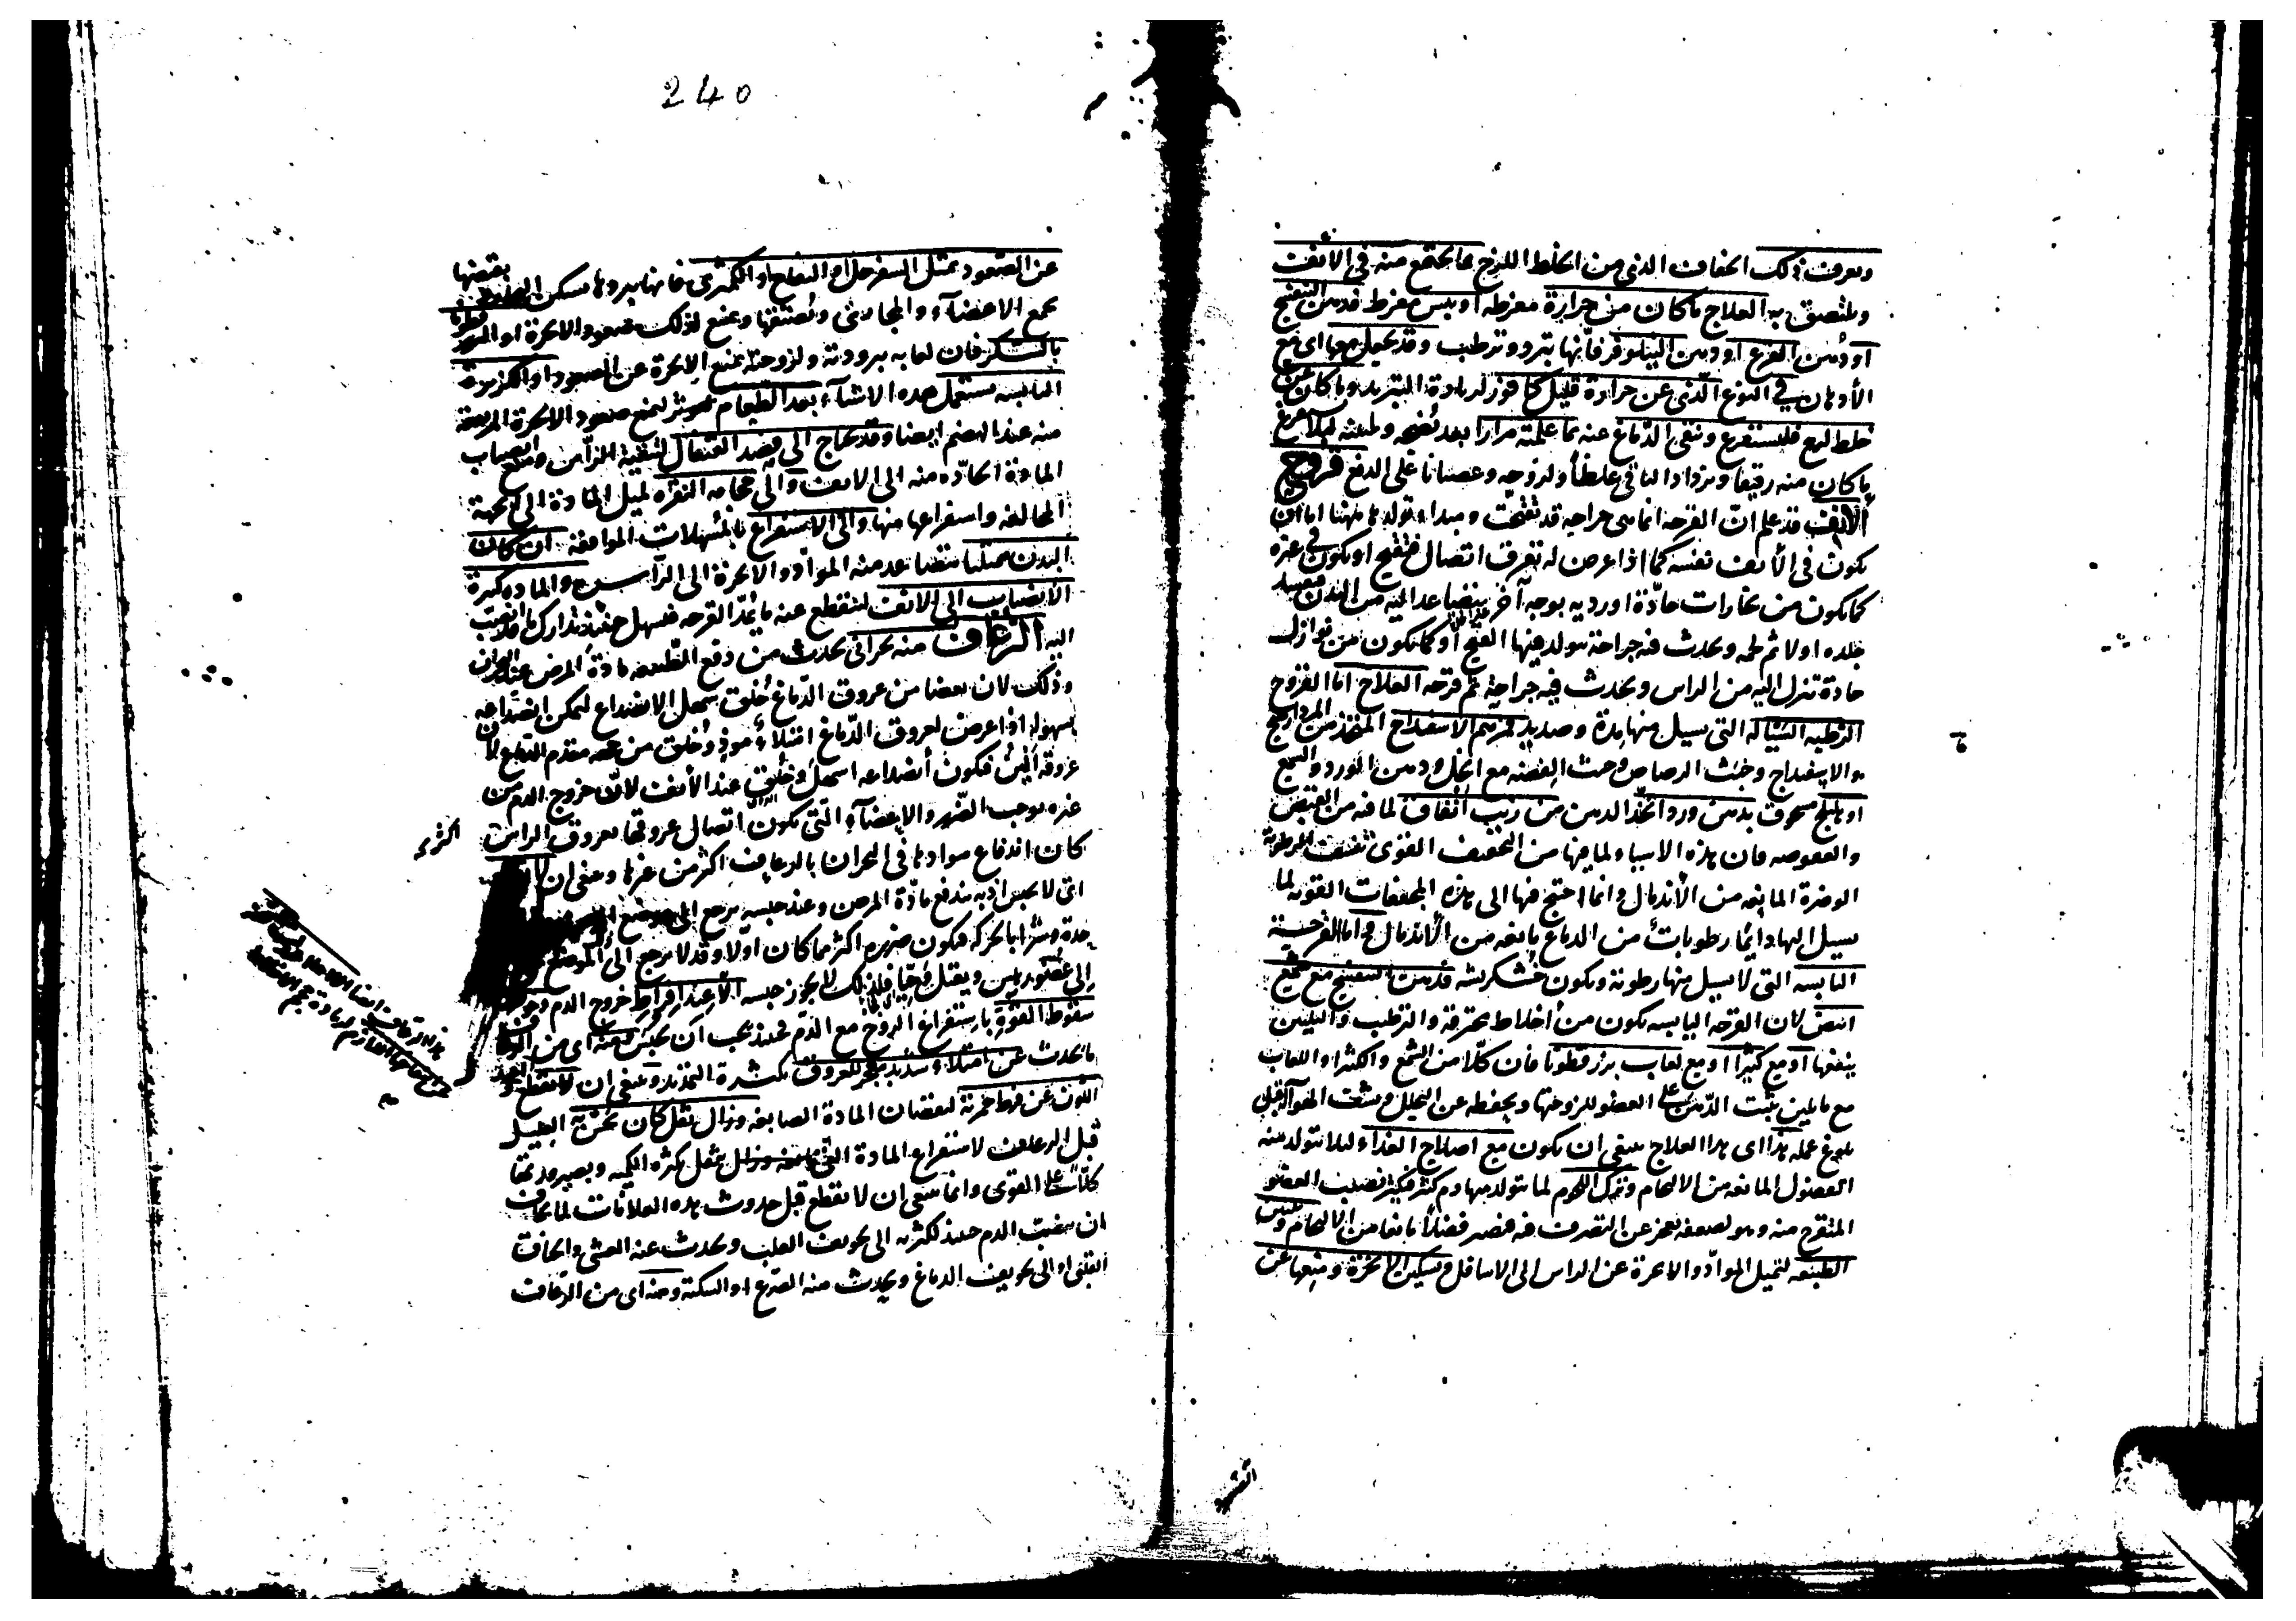 ويعرف ذلك الجفاف الذى من الخلط اللزج بما يجتمع منه فى الأنف
ويلتصق به العلاج ما كان من حرارة مفرطه او يبس مفرط فدهن البنفسج
او دُهن القرع او دهن النيلوفر فانها تبرد وترطب وقد يجعل معها اى مع
الأدهان فى النوع الّذى عن حرارة قليل كافور لزيادة التبريد وما كان عن
خلط لزج فليستفرغ وينقى الدّماغ عنه بما علمته مرارا بعد نُضجه
ما كان منه رقيقا ويزداد الباقى غلظاً ولزوجه وعصيانا على الدفع قروح
الأنف قد علم انّ القرحه انما هى جراحه قد تقيّحت ومبداء تولدها هٰهنا اما ان
يكون فى الأنف نفسه كما اذا عرض له تفرق اتصال فتقيح او يكون فى غيره
كما يكون من بخارات حادّة او رديه بوجه آخر يتصاعد اليه من البدن فيفسد
جلده اولا ثم لحمه ويحدث فيه جراحة يتولد فيها القيح او كما يكون من نوازل
حادة تنزل اليه من الراس ويحدث فيه جراحة ثم قرحه العلاج اما القروح
الرطبه السّيّاله التى يسيل منها مِدة وصديد فمرهم الاسفيداج المتخذ من المرداسنج
والاسفيداج وخبث الرصاص وخبث الفضه مع الخل ودهن الورد والشمع
او هليلج مسحوق بدهن ورد اتخذ الدهن من زيت أنفاق لما فيه من القبض
والعفوصه فان هذه الاشياء لما فيها من التجفيف القوى تنشف الرطوبة
الوضرة المانعه من الأندمال وانما احتيج فيها الى هذه المجففات القويه لما
يسيل اليها دائما رطوبات من الدماغ مانعه من الأندمال واما القرحة
اليابسه التى لا يسيل منها رطوبة ويكون خُشكريشه فدهن البنفسج مع شمع
ابيض لان القرحه اليابسه يكون من أخلاط محترقة والترطيب والتليين
ينفعها او مع كثيرا او مع لعاب بزر قطونا فان كلّا من الشمع والكثيرا واللعاب
مع ما يلين يثبت الدّهن على العضو للزوجتها ويحفظه عن التحلل
بلوغ عمله هذا اى هذا العلاج ينبغى ان يكون مع اصلاح الغذاء لئلا يتولد منه
الفضول المانعه من الالتحام وترك اللحوم لما يتولد منها دم كثير
المتقرح منه وهو لضعفه يعجز عن التصرف فيه فيصير فضلاً مانعا من الالتحام وتليين
الطبيعه لتميل الموادّ والابخرة عن الراس الى الاسافل وتسكين الابخرة ومنعها عن
240
عن الصعود بمثل السفرجل او التفاح او الكمثرى فانها ببردها تسكن
بقبضها
بجمع الاعضآء والمجارى وتضيّقها ويمنع لذلك صعود الابخرة او البزر قطونا
بالسّكر فان لعابه ببرودته ولزوجته يمنع الابخرة عن الصعود او الكزبرة
اليابسه يستعمل هذه الاشيآء بعد الطعام لمنع صعود الابخرة المرتفعة
منه عند الهضم ايضا وقد يحتاج الى فصد القيفال لتنقية الرّأس ومنع انصباب
المادة الحادّه منه الى الانف والى حجامه النقره لميل المادة الى الجهة
المخالفه واستفراغها منها والى الاستفراغ بالمُسهلات الموافقه ان كان
البدن ممتليا يتصاعد منه الموادّ والابخرة الى الرّأس والماده كثيرة
الانصباب الى الانف لينقطع عنه ما يمدّ القرحه فيسهل حينئذ تدارك ما انصب
اليه الرّعاف منه بحرانى يحدث من دفع الطّبيعه مادة المرض عند البحران
وذلك لان بعضا من عروق الدّماغ خُلق سهل الانصداع ليمكن انصداعه
بسهولة اذا عرض لعروق الدّماغ امتلآء موذٍ وخُلق من جهه مقدم الدماغ لان
عروقه أليَن فيكون أنصداعه اسهل وخُلق عند الأنف لانّ خروج الدم من
غيره يوجب الضّرر والاعضآء الّتى يكون اتصال عروقها بعروق الراس
اكثر
كان اندفاع موادها فى البحران بالرعاف اكثر من غيرها وينبغى ان
اى لا يحبس اذ به يندفع مادّة المرض وعند حبسه يرجع الى
حدة وشرّا بالحركه فيكون ضرره اكثر مما كان اولا وقد لا يرجع الى الموضع
الى عُضو رييس ويقتل فجأة فلذلك لا يجوز حبسه الّا عند افراط خروج الدم
سقوط القوة باستفراغ الروح مع الدّم فحينئذ يجب ان يحبس ومنه اى من الرعاف
ما يحدث عن امتلاء شديد مفجر للعروق بشدة التمديد وينبغى ان لا يقطع
اللون عن فرط حمرته لنقصان المادة الصابغه وزال ثقل كان يحس به العليل
قبل الرعاف لاستفراغ المادة التى يثقل بكثره الكميه وبصيرورتها
كلّاً على القوى وانما ينبغى ان لا يقطع قبل حدوث هذه العلامات لما يخاف
ان ينصبّ الدم حينئذ لكثرته الى تجويف القلب ويحدث عنه الغشى والخناق
القلبى او الى تجويف الدماغ ويحدث منه الصّرع او السكتة ومنه اى من الرعاف